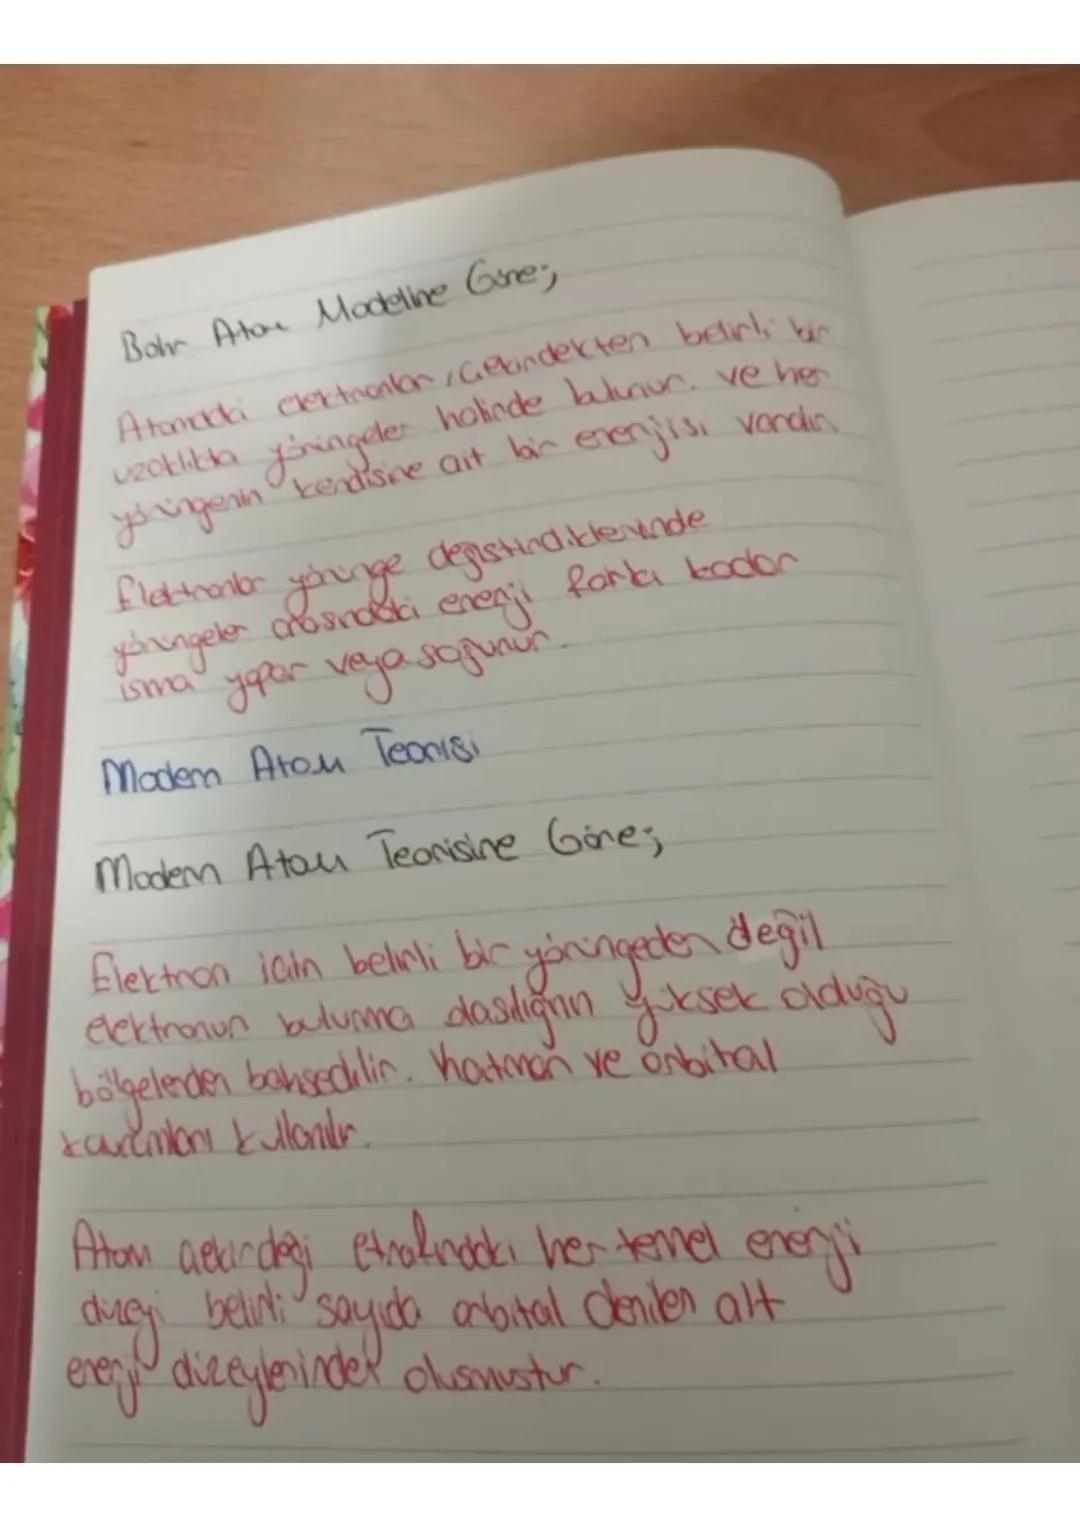 Bohr Atom Modeline Göre;
Atomdaki elektronlar, çekindekten belirli bir
uzaklıkta yörüngeler halinde bulunur. ve her
yörüngenin kendisine ait bir enerjisi vardır.
Elektronlar yörünge değiştirdiklerinde
yörüngeler arasındaki enerji farkı kadar
ısıma yapar veya soğunur.
Modern Atom Teorisi
Modern Atom Teorisine Göre;
Elektron için belirli bir yörüngeden değil
elektronun bulunma olasılığının yüksek olduğu
bölgelerden bahsedilir. Katman ve orbital
kavramları kullanılır.
Atom çekirdeği etrafındaki her temel enerji
düzeyi belirli sayıda orbital denilen alt
enerji düzeylerinden oluşmuştur.